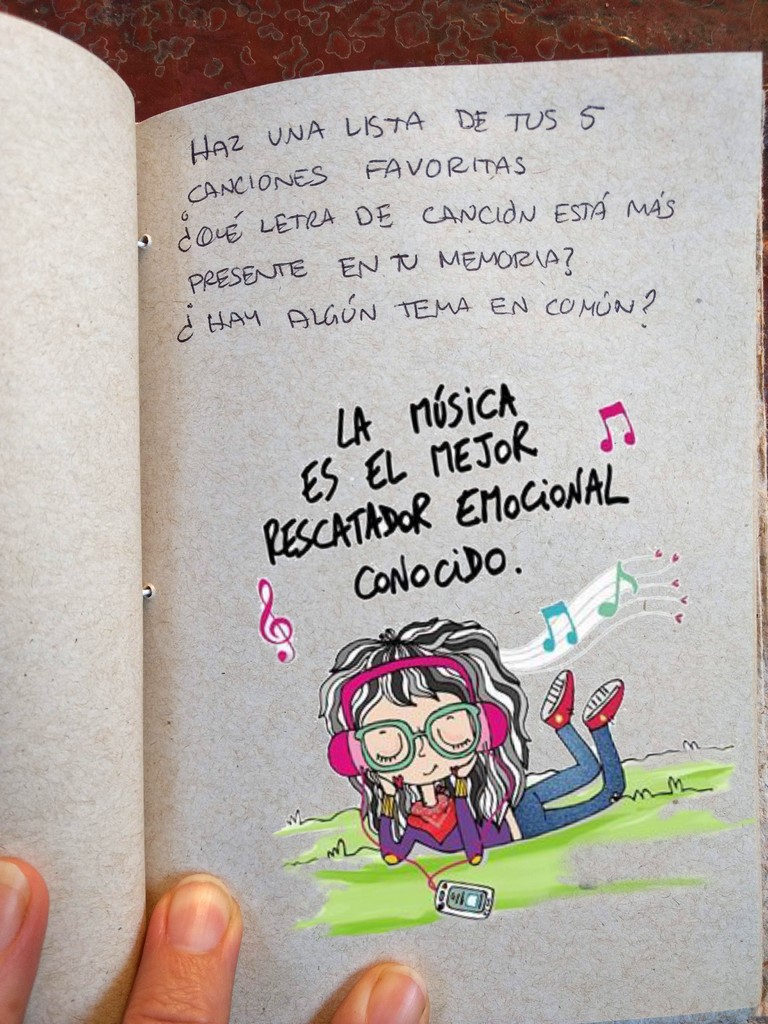 HAZ UNA LISTA DE TUS 5
CANCIONES FAVORITAS
¿QUÉ LETRA DE CANCIÓN ESTÁ MÁS
PRESENTE EN TU MEMORIA?
¿HAY ALGÚN TEMA EN COMÚN?
LA MÚSICA
ES EL MEJOR
RESCATADOR EMOCIONAL
CONOCIDO.